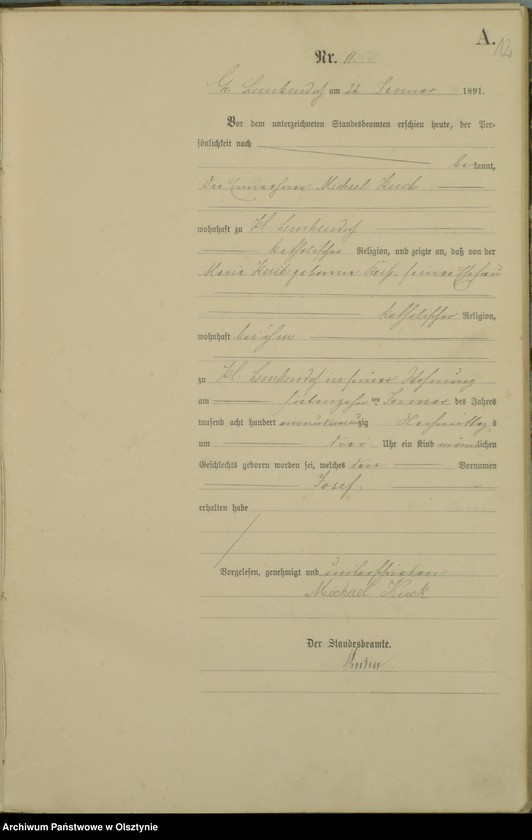 A.
12
Nr. 11.
Gr. Lemkendorf am 22. Januar 1891.
Vor dem unterzeichneten Standesbeamten erschien heute, der Per-
sönlichkeit nach
be kannt,
Der Einwohner Michael Kuck
wohnhaft zu Kl. Lemkendorf
katholischer Religion, und zeigte an, daß von der
Maria Kuck geborenen seiner Ehefrau
katholischer Religion,
wohnhaft bei ihm
zu Kl. Lemkendorf in seiner Wohnung
am siebenzehn ten Januar des Jahres
tausend acht hundert einundneunzig Nachmittags
um drei Uhr ein Kind männlichen
Geschlechts geboren worden sei, welches den Vornamen
Josef,
erhalten habe
Vorgelesen, genehmigt und unterschrieben
Michael Kuck
Der Standesbeamte.
Archiwum Państwowe w Olsztynie